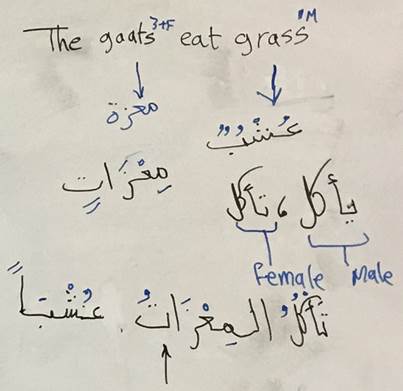 The goats 3+F eat grass 1M
معزة
عُشْبٌ
مِعْزَاتٍ
يأكل ، تأكل
Female Male
تَأْكُلُ المِعْزَاتُ . عُشْبَاً